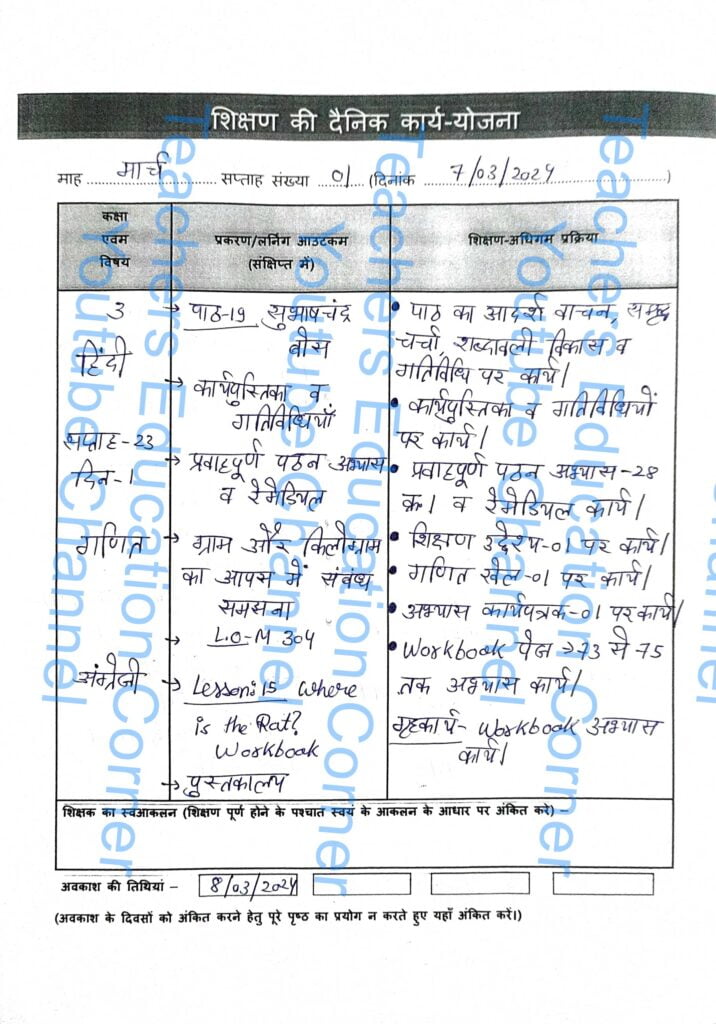 शिक्षण की दैनिक कार्य-योजना
माह मार्च सप्ताह संख्या 01 (दिनांक 7/03/2024)
कक्षा एवम विषय
प्रकरण/लर्निंग आउटकम (संक्षिप्त में)
शिक्षण-अधिगम प्रक्रिया
3
हिंदी
सप्ताह-23
दिन-1
गणित
अंग्रेजी
→ पाठ-19 सुभाषचंद्र
बोस
→ कार्यपुस्तिका व
गतिविधियाँ
→ प्रवाहपूर्ण पठन अभ्यास
व रेमेडियल
→ ग्राम और किलोग्राम
का आपस में संबंध
समसना
→ L.O-M 304
→ Lesson:15 Where
is the Rat?
Workbook
→ पुस्तकालय
• पाठ का आदर्श वाचन, समृद्ध
चर्चा, शब्दावली विकास व
गतिविधि पर कार्य।
• कार्यपुस्तिका व गतिविधियों
पर कार्य।
• प्रवाहपूर्ण पठन अभ्यास-28
क्र1 व रेमेडियल कार्य।
• शिक्षण उद्देश्य-01 पर कार्य।
• गणित खेल-01 पर कार्य।
• अभ्यास कार्यपत्रक-01 पर कार्य।
• Workbook पेज →73 से 75
तक अभ्यास कार्य।
गृहकार्य- Workbook अभ्यास
कार्य।
शिक्षक का स्वआकलन (शिक्षण पूर्ण होने के पश्चात स्वयं के आकलन के आधार पर अंकित करे) –
अवकाश की तिथियां – 8/03/2024
(अवकाश के दिवसों को अंकित करने हेतु पूरे पृष्ठ का प्रयोग न करते हुए यहाँ अंकित करें।)
Teachers Education Corner
Youtube Channel
Teachers Education Corner
Youtube Channel
Teachers Education Corner
Youtube Channel
Channel